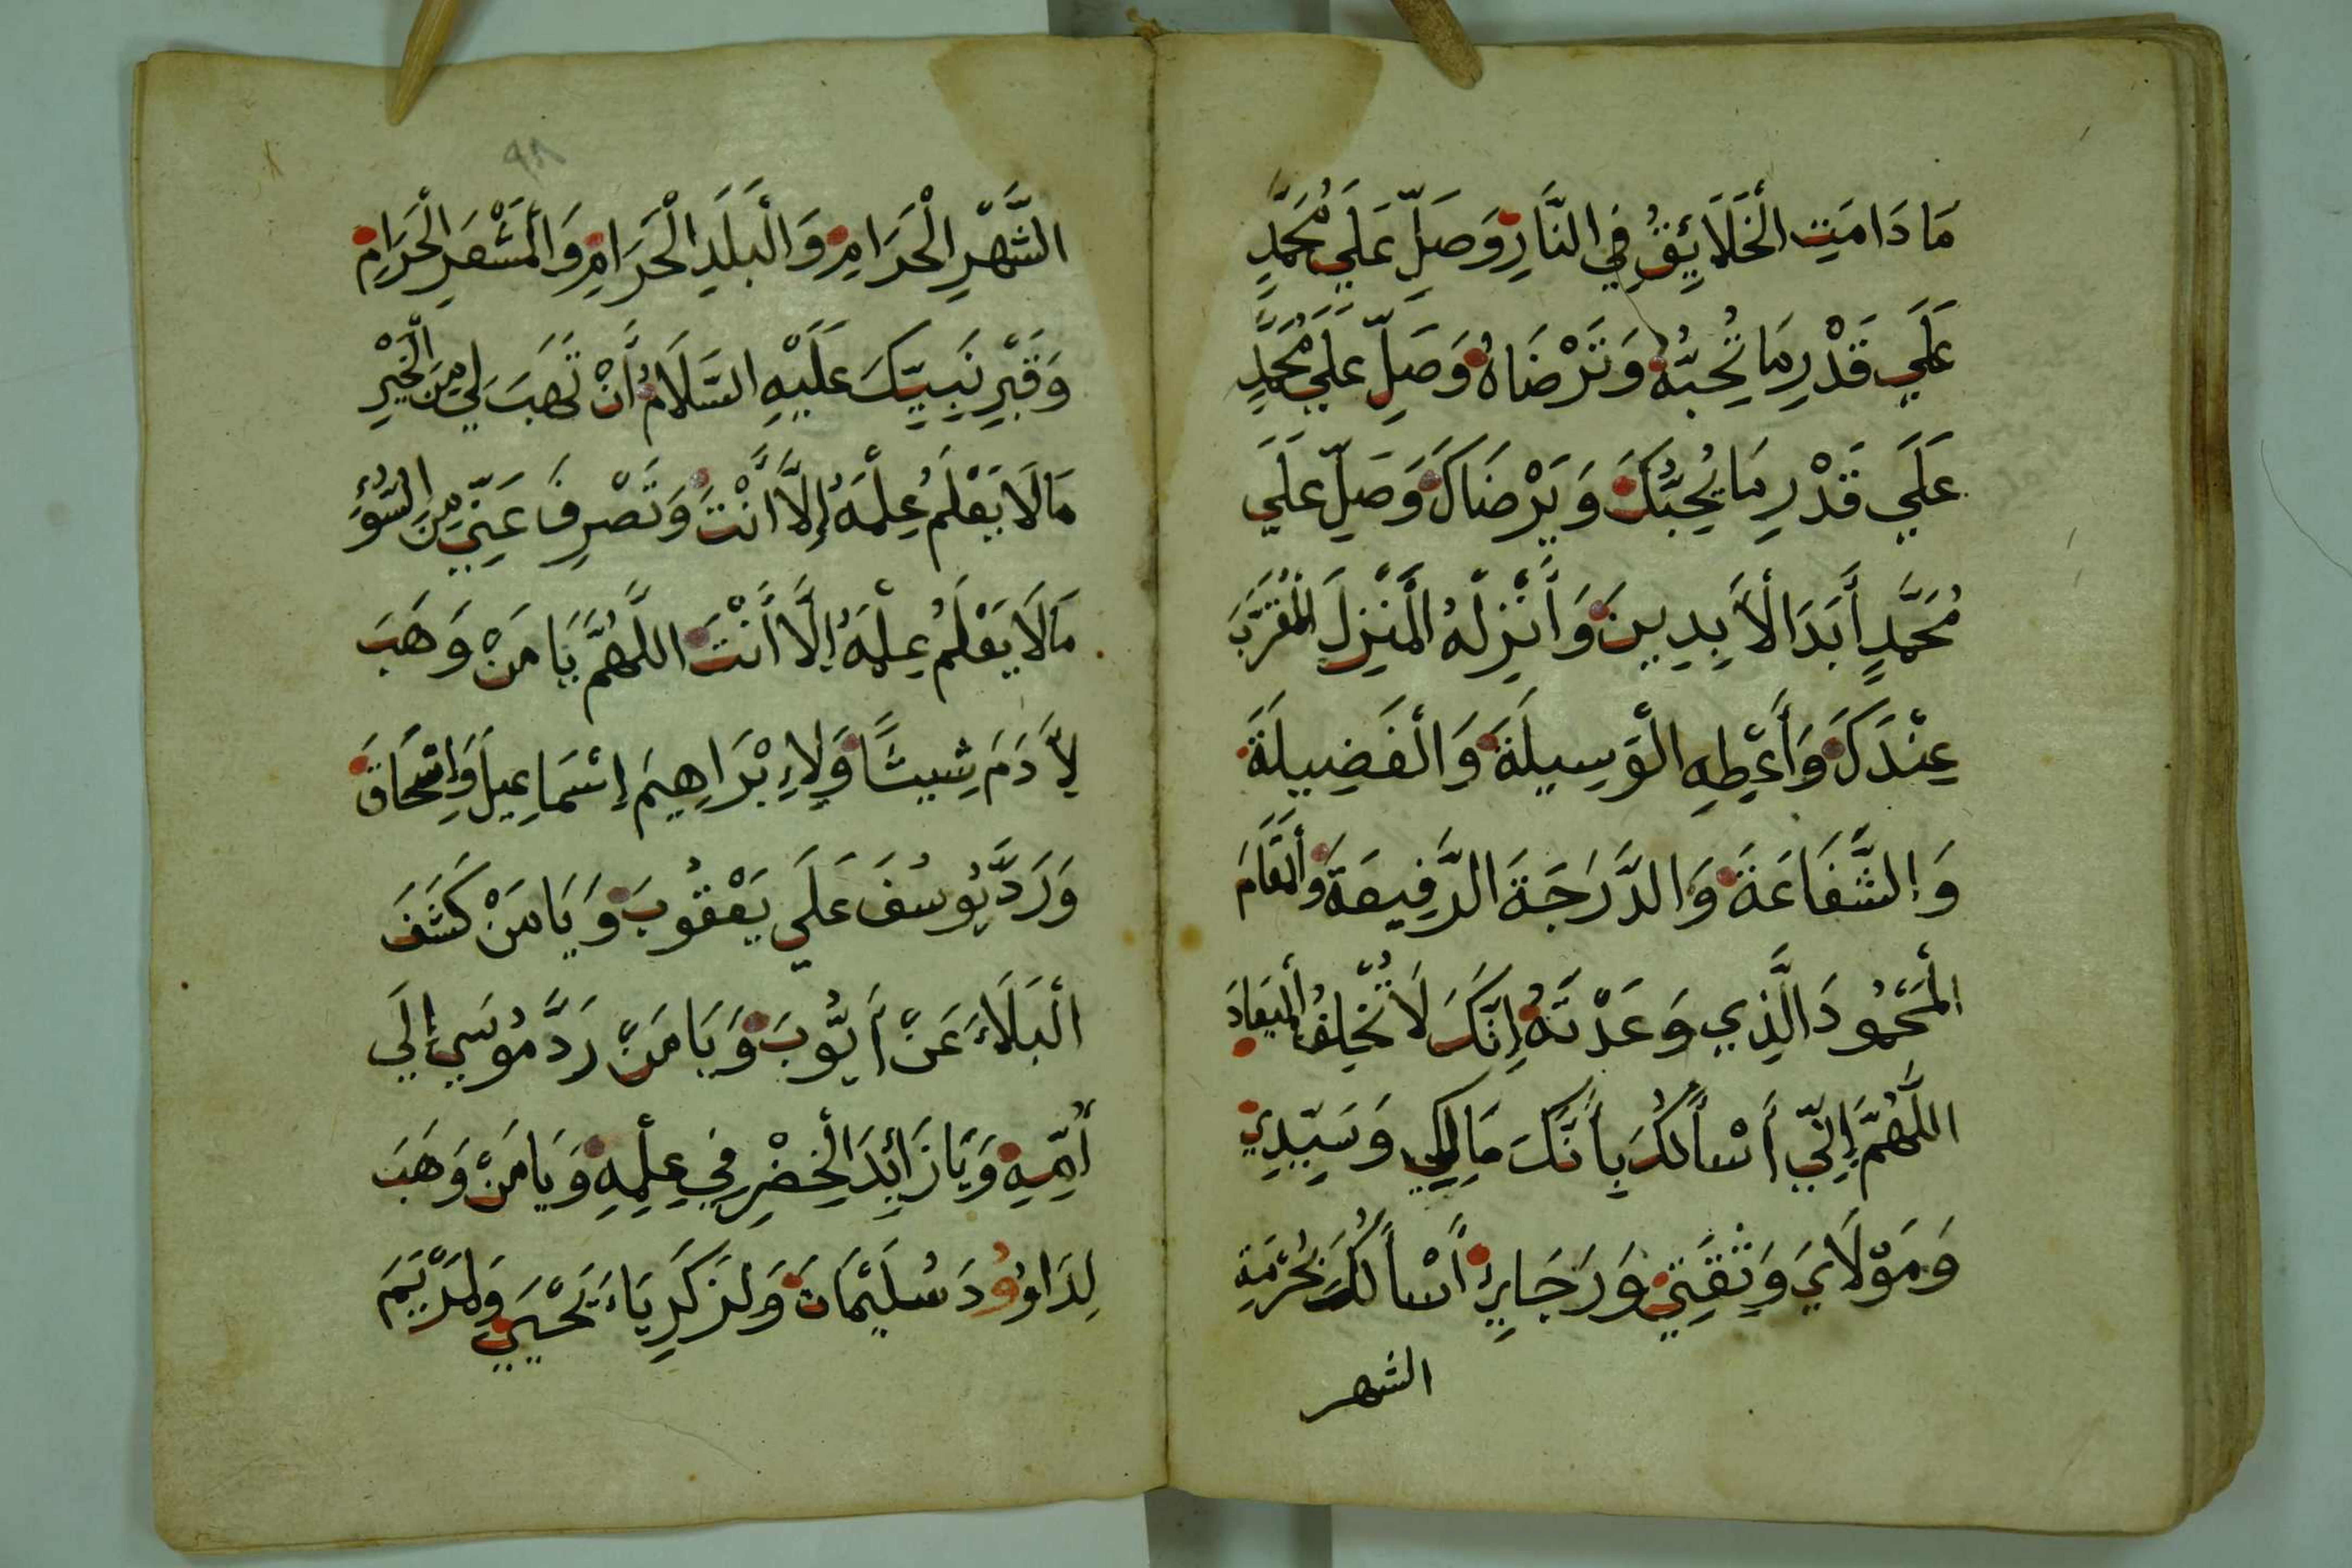 مَا دَامَتِ الْخَلَائِقُ فِي النَّارِ وَصَلِّ عَلَي مُحَمَّدٍ
عَلَي قَدْرِ مَا تُحِبُّهُ وَتَرْضَاهُ وَصَلِّ عَلَي مُحَمَّدٍ
عَلَي قَدْرِ مَا يُحِبُّكَ وَيَرْضَاكَ وَصَلِّ عَلَي
مُحَمَّدٍ أَبَدَ الْأَبِدِينَ وَأَنْزِلْهُ الْمَنْزِلَ الْمُقَرَّبَ
عِنْدَكَ وَأَعْطِهِ الْوَسِيلَةَ وَالْفَضِيلَةَ
وَالشَّفَاعَةَ وَالدَّرَجَةَ الرَّفِيعَةَ وَالْمَقَامَ
الْمَحْمُودَ الَّذِي وَعَدْتَهُ إِنَّكَ لَا تُخْلِفُ الْمِيعَادَ
اللَّهُمَّ إِنِّي أَسْأَلُكَ بِأَنَّكَ مَالِكِي وَسَيِّدِي
وَمَوْلَايَ وَثِقَتِي وَرَجَايِئ أَسْأَلُكَ بِحُرْمَةِ
الشهر
٩٨
الشَّهْرِ الْحَرَامِ وَالْبَلَدِ الْحَرَامِ وَالْمَشْعَرِ الْحَرَامِ
وَقَبْرِ نَبِيِّكَ عَلَيْهِ السَّلَامُ أَنْ تَهَبَ لِي مِنَ الْخَيْرِ
مَا لَا يَعْلَمُ عِلْمَهُ إِلَّا أَنْتَ وَتَصْرِفَ عَنِّي مِنَ السُّوْءِ
مَا لَا يَعْلَمُ عِلْمَهُ إِلَّا أَنْتَ اللَّهُمَّ يَا مَنْ وَهَبَ
لِأَدَمَ شِيثًا وَلِإِبْرَاهِيمَ إِسْمَاعِيلَ وَإِسْحَاقَ
وَرَدَّ يُوسُفَ عَلَي يَعْقُوبَ وَيَا مَنْ كَشَفَ
الْبَلَاءَ عَنْ أَيُّوبَ وَيَا مَنْ رَدَّ مُوسَي إِلَي
أُمِّهِ وَيَا زَائِدَ الْخِضْرِ فِي عِلْمِهِ وَيَا مَنْ وَهَبَ
لِدَاوُودَ سُلَيْمَانَ وَلِزَكَرِيَاءَ يَحْيَي وَلِمَرْيَمَ